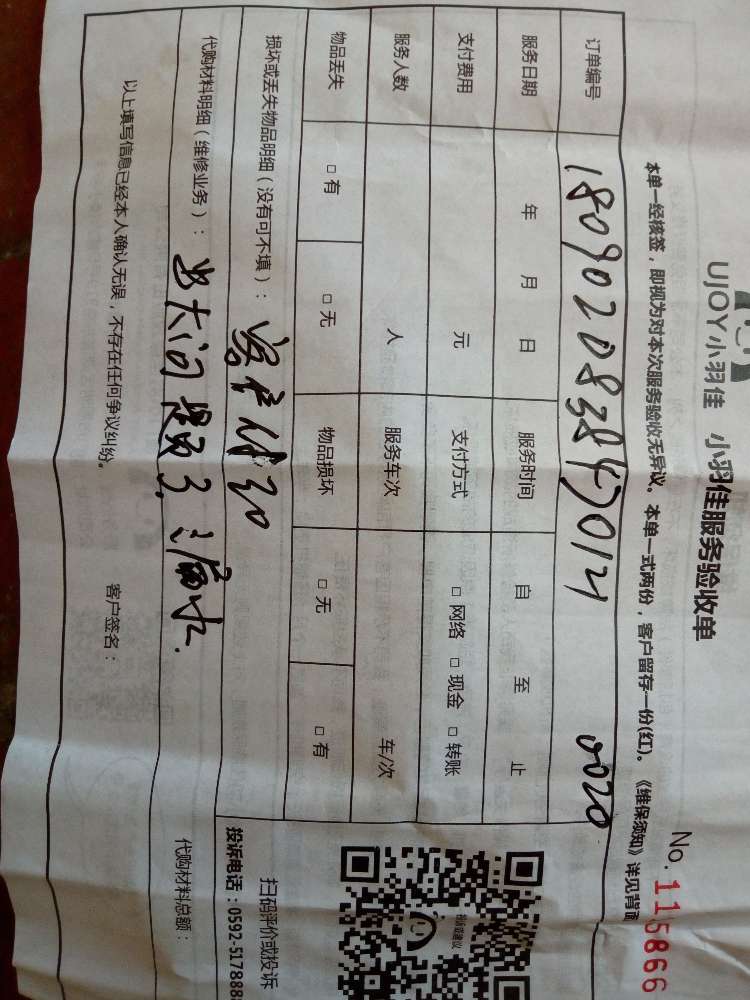 UJOY小羽佳 小羽佳服务验收单
No. 115866
本单一经核签，即视为对本次服务验收无异议。本单一式两份，客户留存一份(红)。《维保须知》详见背面
订单编号 0020
服务日期 年 月 日 服务时间 自 至 止
支付费用 元 支付方式 □ 网络 □ 现金 □ 转账
服务人数 人 服务车次 车/次
物品丢失 □ 有 □ 无 物品损坏 □ 无 □ 有
损坏或丢失物品明细（没有可不填）：
代购材料明细（维修业务）： 大问题 漏水.
代购材料总额：
以上填写信息已经本人确认无误，不存在任何争议纠纷。 客户签名：
扫码评价或投诉
投诉电话：0592-5178888